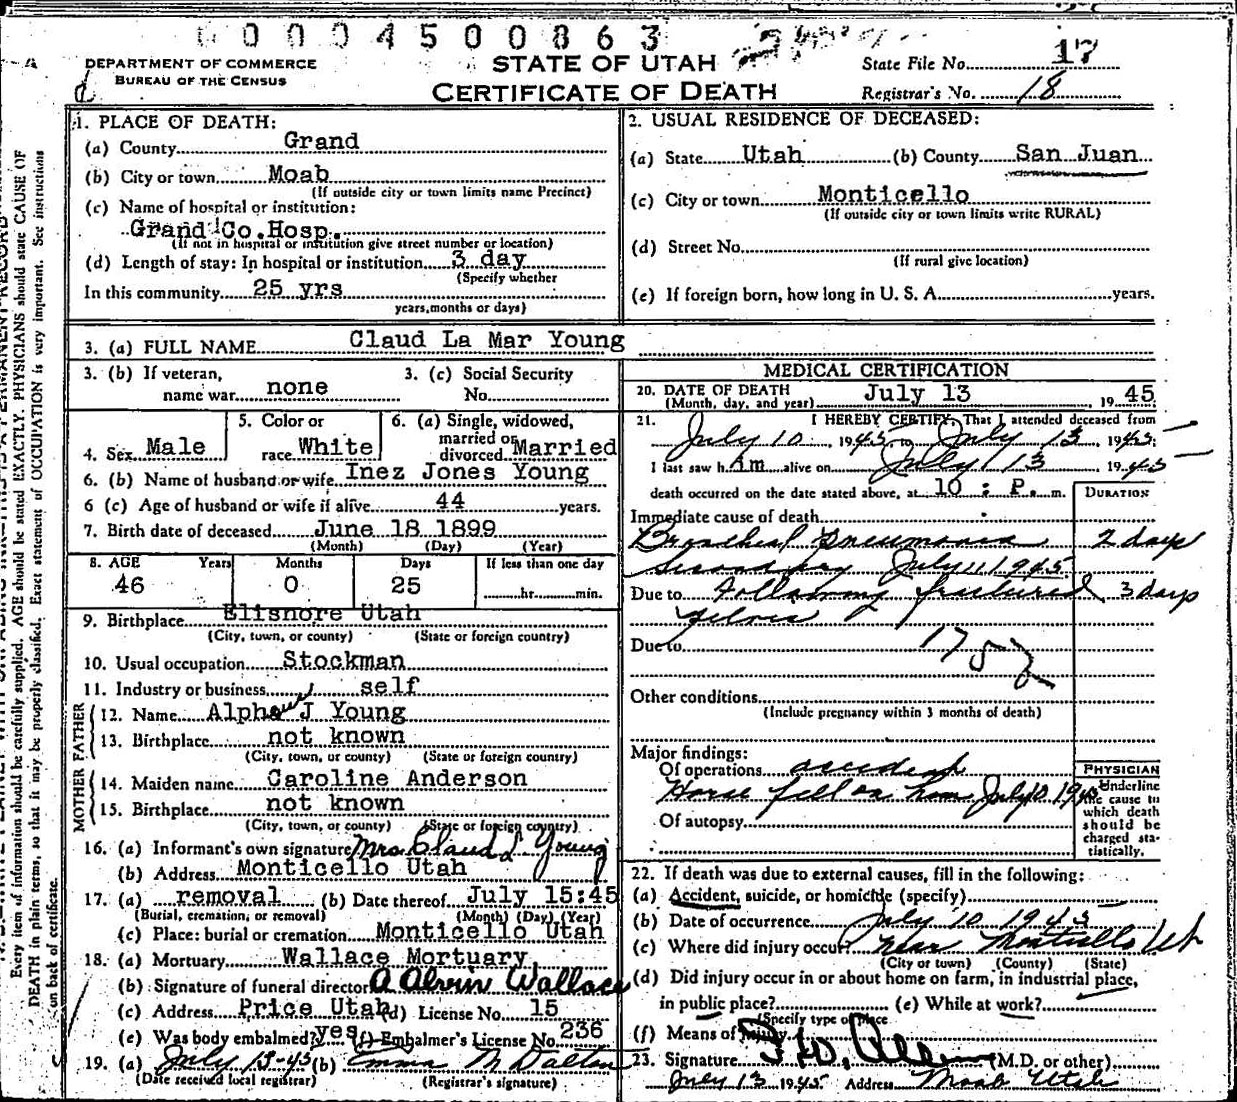 0 0 0 4 5 0 0 8 6 3
DEPARTMENT OF COMMERCE
BUREAU OF THE CENSUS
STATE OF UTAH
CERTIFICATE OF DEATH
State File No. 17
Registrar's No. 18
1. PLACE OF DEATH:
(a) County Grand
(b) City or town Moab
(If outside city or town limits name Precinct)
(c) Name of hospital or institution:
Grand Co.Hosp.
(If not in hospital or institution give street number or location)
(d) Length of stay: In hospital or institution 3 day
(Specify whether
In this community 25 yrs
years, months or days)
2. USUAL RESIDENCE OF DECEASED:
(a) State Utah (b) County San Juan
(c) City or town Monticello
(If outside city or town limits write RURAL)
(d) Street No.
(If rural give location)
(e) If foreign born, how long in U. S. A. years.
3. (a) FULL NAME Claud La Mar Young
3. (b) If veteran, name war none
3. (c) Social Security No.
4. Sex Male
5. Color or race White
6. (a) Single, widowed, married or divorced Married
6. (b) Name of husband or wife Inez Jones Young
6 (c) Age of husband or wife if alive 44 years.
7. Birth date of deceased June 18 1899
(Month) (Day) (Year)
8. AGE Years Months Days If less than one day
46 0 25 hr. min.
9. Birthplace Elisnore Utah
(City, town, or county) (State or foreign country)
10. Usual occupation Stockman
11. Industry or business self
FATHER
12. Name Alpha J Young
13. Birthplace not known
(City, town, or county) (State or foreign country)
MOTHER
14. Maiden name Caroline Anderson
15. Birthplace not known
(City, town, or county) (State or foreign country)
16. (a) Informant's own signature Mrs Claud L Young
(b) Address Monticello Utah
17. (a) removal (b) Date thereof July 15:45
(Burial, cremation, or removal) (Month) (Day) (Year)
(c) Place: burial or cremation Monticello Utah
18. (a) Mortuary Wallace Mortuary
(b) Signature of funeral director A Alvin Wallace
(c) Address Price Utah (d) License No. 15
(e) Was body embalmed? yes (f) Embalmer's License No. 236
19. (a) July 13-45 (b) Emma M Dalton
(Date received local registrar) (Registrar's signature)
MEDICAL CERTIFICATION
20. DATE OF DEATH July 13 1945
(Month, day, and year)
21. I HEREBY CERTIFY, That I attended deceased from
July 10, 1945 to July 13 1945;
I last saw him alive on July 13 1945
death occurred on the date stated above, at 10 : P. m.
DURATION
Immediate cause of death
Bronchial Pneumonia 2 days
Secondary July 11 1945
Due to Following fractured 3 days
Pelvis
Due to
Other conditions
(Include pregnancy within 3 months of death)
Major findings:
Of operations accident
Horse fell on him July 10 1945
Of autopsy
PHYSICIAN
Underline
the cause to
which death
should be
charged sta-
tistically.
22. If death was due to external causes, fill in the following:
(a) Accident, suicide, or homicide (specify)
(b) Date of occurrence July 10 1945
(c) Where did injury occur? near Monticello Ut
(City or town) (County) (State)
(d) Did injury occur in or about home on farm, in industrial place,
in public place? (e) While at work?
(Specify type of place
(f) Means of injury
23. Signature Allen (M.D. or other)
July 13 1945 Address Moab Utah
Every item of information should be carefully supplied. AGE should be stated EXACTLY. PHYSICIANS should state CAUSE OF
DEATH in plain terms, so that it may be properly classified. Exact statement of OCCUPATION is very important. See instructions
on back of certificate.